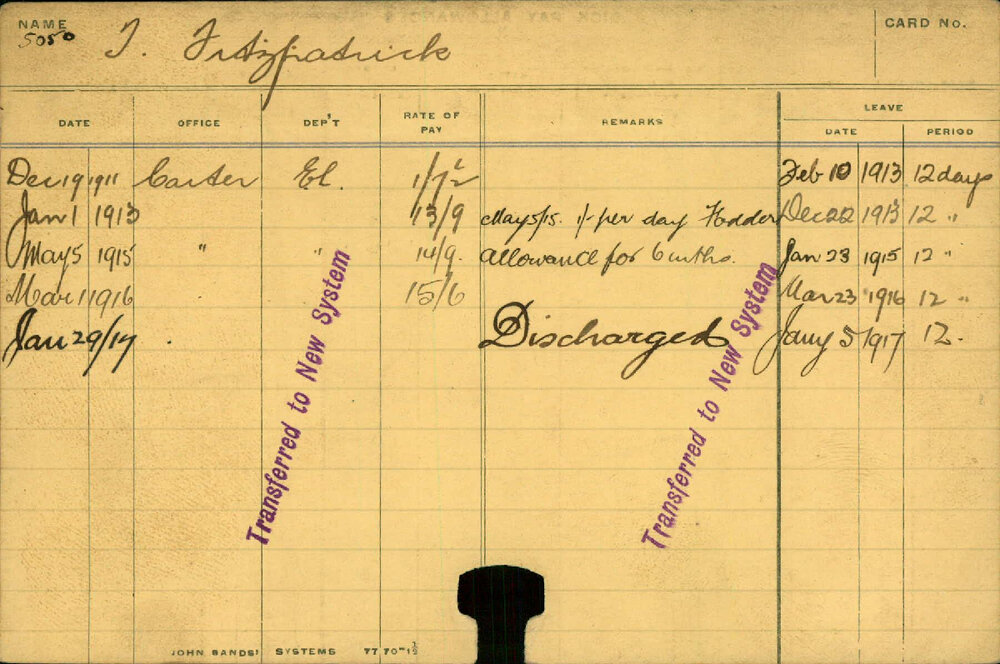 NAME
CARD No.
5050
T. Fitzpatrick
LEAVE
DATE OFFICE DEP'T RATE OF PAY REMARKS DATE PERIOD
Dec 19 1911 Carter El. 1/7½ Feb 10 1913 12 days
Jan 1 1913 13/9 May 5/15. 1/- per day Fodder Dec 22 1913 12 "
May 5 1915 " " 14/9. allowance for 6 mths. Jan 23 1915 12 "
Mar 1 1916 15/6 Mar 23 1916 12 "
Jan 29/17 Discharged Jany 5 1917 12.
Transferred to New System
Transferred to New System
JOHN SANDS' SYSTEMS 77 70